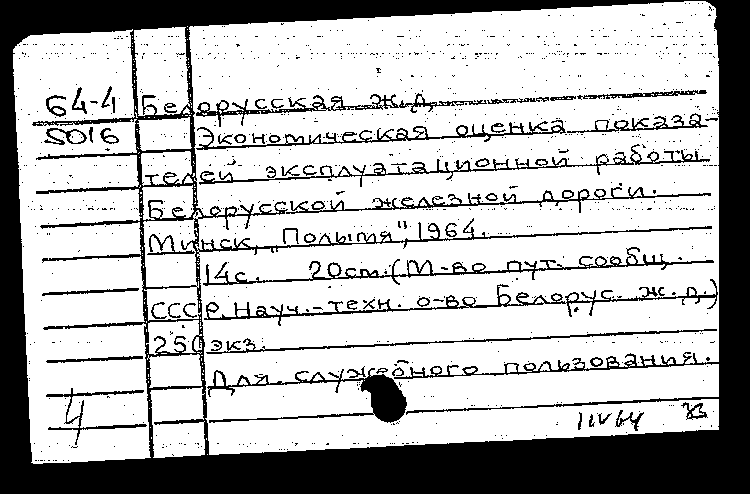 64-4 Белорусская ж.д.
5016 Экономическая оценка показа-
телей эксплуатационной работы
Белорусской железной дороги.
Минск, „Полымя", 1964.
14с. 20cm. (М-во пут. сообщ.
СССР. Науч.-техн. о-во Белорус. ж.д.)
250 экз.
Для служебного пользования.
4
11V64